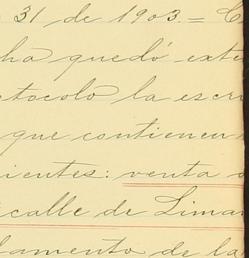 31 de 1903 = C
ha quedó exte
otocolo la escri
que contienen
ientes: venta
calle de Lima
lamento de la